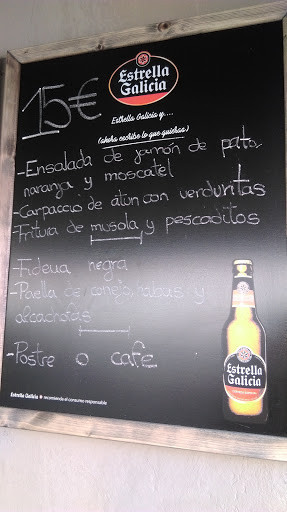 15€
Estrella
Galicia
Estrella Galicia y....
(ahora escribe lo que quieras)
-Ensalada de jamón de pato,
naranja y moscatel
-Carpaccio de atún con verduritas
-Fritura de musola y pescaditos
-Fideua negra
-Paella de conejo, habas y
alcachofas
-Postre o cafe
Estrella
Galicia
Estrella Galicia recomienda el consumo responsable